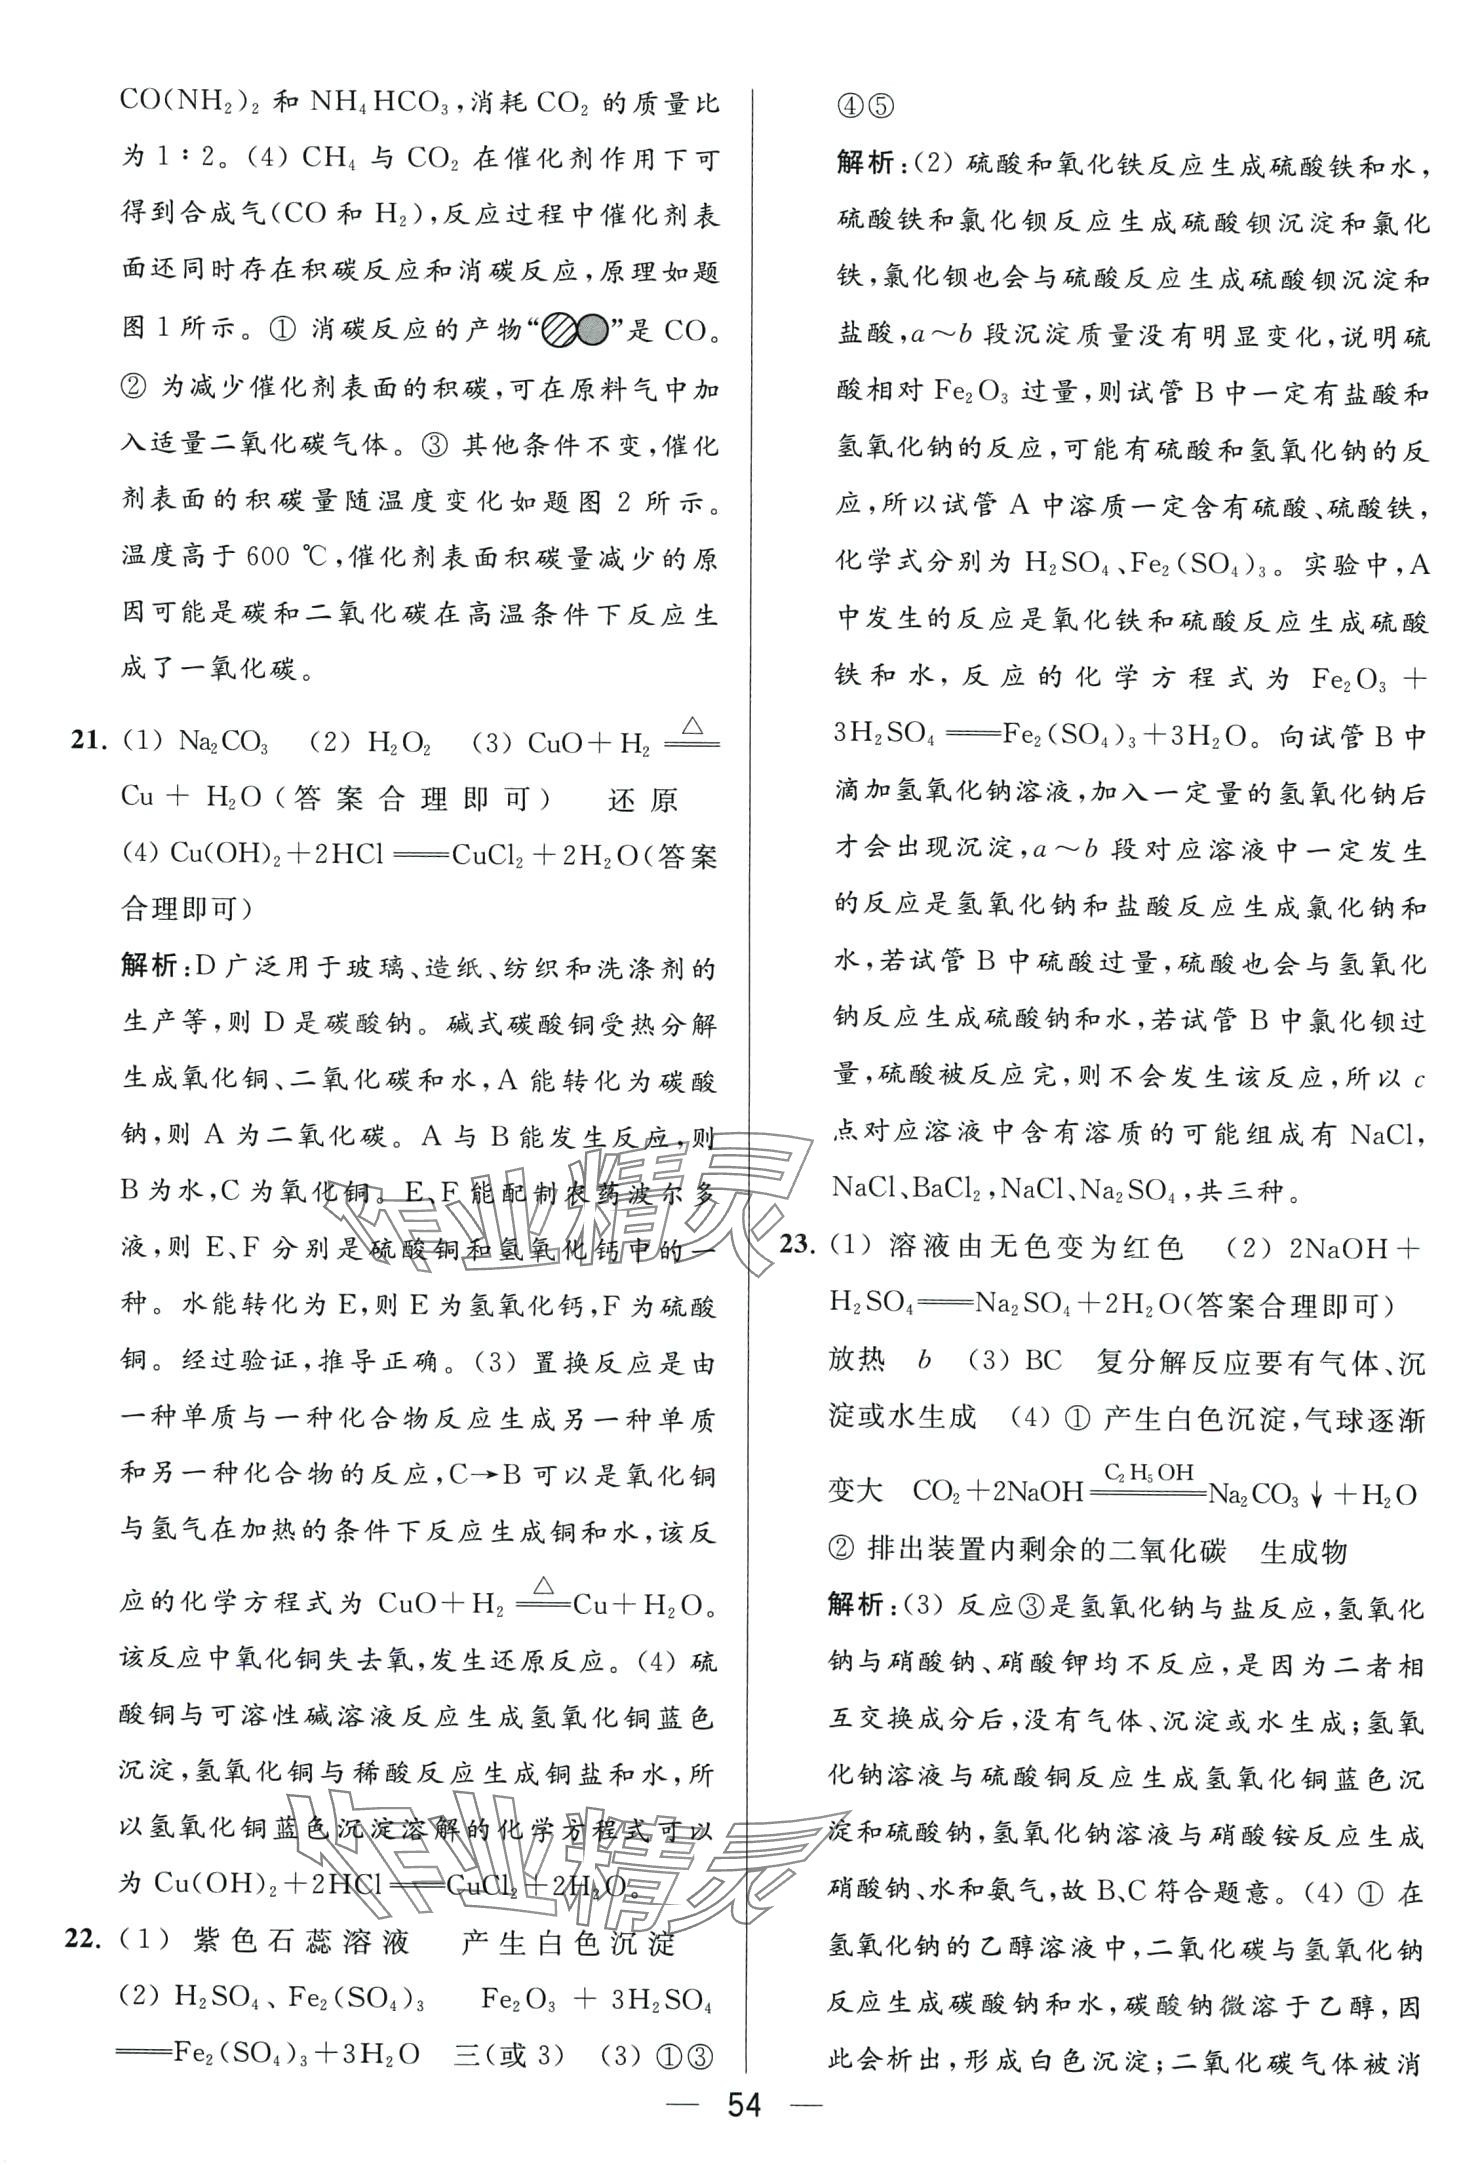 CO(NH₂)₂ 和 NH₄HCO₃,消耗 CO₂ 的质量比
为 1∶2。(4) CH₄ 与 CO₂ 在催化剂作用下可
得到合成气(CO 和 H₂),反应过程中催化剂表
面还同时存在积碳反应和消碳反应,原理如题
图 1 所示。① 消碳反应的产物“”是 CO。
② 为减少催化剂表面的积碳,可在原料气中加
入适量二氧化碳气体。③ 其他条件不变,催化
剂表面的积碳量随温度变化如题图 2 所示。
温度高于 600 ℃,催化剂表面积碳量减少的原
因可能是碳和二氧化碳在高温条件下反应生
成了一氧化碳。
21. (1) Na₂CO₃ (2) H₂O₂ (3) CuO+H₂ ══△══
Cu + H₂O(答案合理即可) 还原
(4) Cu(OH)₂+2HCl══CuCl₂+2H₂O(答案
合理即可)
解析:D 广泛用于玻璃、造纸、纺织和洗涤剂的
生产等,则 D 是碳酸钠。碱式碳酸铜受热分解
生成氧化铜、二氧化碳和水,A 能转化为碳酸
钠,则 A 为二氧化碳。A 与 B 能发生反应,则
B 为水,C 为氧化铜。E、F 能配制农药波尔多
液,则 E、F 分别是硫酸铜和氢氧化钙中的一
种。水能转化为 E,则 E 为氢氧化钙,F 为硫酸
铜。经过验证,推导正确。(3) 置换反应是由
一种单质与一种化合物反应生成另一种单质
和另一种化合物的反应,C→B 可以是氧化铜
与氢气在加热的条件下反应生成铜和水,该反
应的化学方程式为 CuO+H₂ ══△══ Cu+H₂O。
该反应中氧化铜失去氧,发生还原反应。(4) 硫
酸铜与可溶性碱溶液反应生成氢氧化铜蓝色
沉淀,氢氧化铜与稀酸反应生成铜盐和水,所
以氢氧化铜蓝色沉淀溶解的化学方程式可以
为 Cu(OH)₂+2HCl══CuCl₂+2H₂O。
22. (1) 紫色石蕊溶液 产生白色沉淀
(2) H₂SO₄、Fe₂(SO₄)₃ Fe₂O₃ + 3H₂SO₄
══Fe₂(SO₄)₃+3H₂O 三(或 3) (3) ①③
④⑤
解析:(2) 硫酸和氧化铁反应生成硫酸铁和水,
硫酸铁和氯化钡反应生成硫酸钡沉淀和氯化
铁,氯化钡也会与硫酸反应生成硫酸钡沉淀和
盐酸,a～b 段沉淀质量没有明显变化,说明硫
酸相对 Fe₂O₃ 过量,则试管 B 中一定有盐酸和
氢氧化钠的反应,可能有硫酸和氢氧化钠的反
应,所以试管 A 中溶质一定含有硫酸、硫酸铁,
化学式分别为 H₂SO₄、Fe₂(SO₄)₃。实验中,A
中发生的反应是氧化铁和硫酸反应生成硫酸
铁和水,反应的化学方程式为 Fe₂O₃ +
3H₂SO₄══Fe₂(SO₄)₃+3H₂O。向试管 B 中
滴加氢氧化钠溶液,加入一定量的氢氧化钠后
才会出现沉淀,a～b 段对应溶液中一定发生
的反应是氢氧化钠和盐酸反应生成氯化钠和
水,若试管 B 中硫酸过量,硫酸也会与氢氧化
钠反应生成硫酸钠和水,若试管 B 中氯化钡过
量,硫酸被反应完,则不会发生该反应,所以 c
点对应溶液中含有溶质的可能组成有 NaCl,
NaCl、BaCl₂,NaCl、Na₂SO₄,共三种。
23. (1) 溶液由无色变为红色 (2) 2NaOH+
H₂SO₄══Na₂SO₄+2H₂O(答案合理即可)
放热 b (3) BC 复分解反应要有气体、沉
淀或水生成 (4) ① 产生白色沉淀,气球逐渐
变大 CO₂+2NaOH ══C₂H₅OH══ Na₂CO₃↓+H₂O
② 排出装置内剩余的二氧化碳 生成物
解析:(3) 反应③是氢氧化钠与盐反应,氢氧化
钠与硝酸钠、硝酸钾均不反应,是因为二者相
互交换成分后,没有气体、沉淀或水生成;氢氧
化钠溶液与硫酸铜反应生成氢氧化铜蓝色沉
淀和硫酸钠,氢氧化钠溶液与硝酸铵反应生成
硝酸钠、水和氨气,故 B、C 符合题意。(4) ① 在
氢氧化钠的乙醇溶液中,二氧化碳与氢氧化钠
反应生成碳酸钠和水,碳酸钠微溶于乙醇,因
此会析出,形成白色沉淀;二氧化碳气体被消
— 54 —
作业精灵
作业精灵